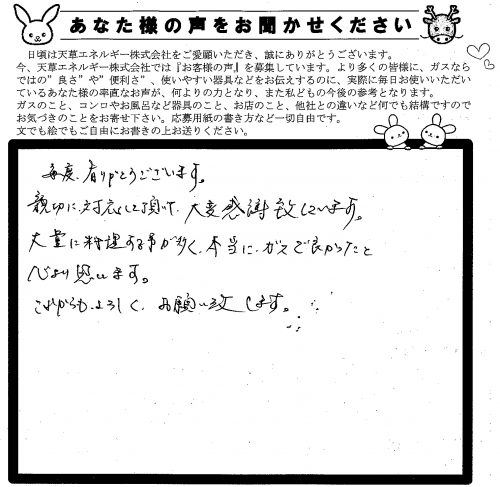 あなた様の声をお聞かせください
日頃は天草エネルギー株式会社をご愛顧いただき、誠にありがとうございます。
今、天草エネルギー株式会社では『お客様の声』を募集しています。より多くの皆様に、ガスなら
ではの”良さ”や”便利さ”、使いやすい器具などをお伝えするのに、実際に毎日お使いいただい
ているあなた様の率直なお声が、何よりの力となり、また私どもの今後の参考となります。
ガスのこと、コンロやお風呂など器具のこと、お店のこと、他社との違いなど何でも結構ですので
お気づきのことをお寄せ下さい。応募用紙の書き方など一切自由です。
文でも絵でもご自由にお書きの上お送りください。
毎度、有りがとうございます。
親切に対応して頂いて、大変感謝致しています。
大量に料理する事が多く、本当に、ガスで良かったと
心より思います。
これからも、よろしく、お願い致します。